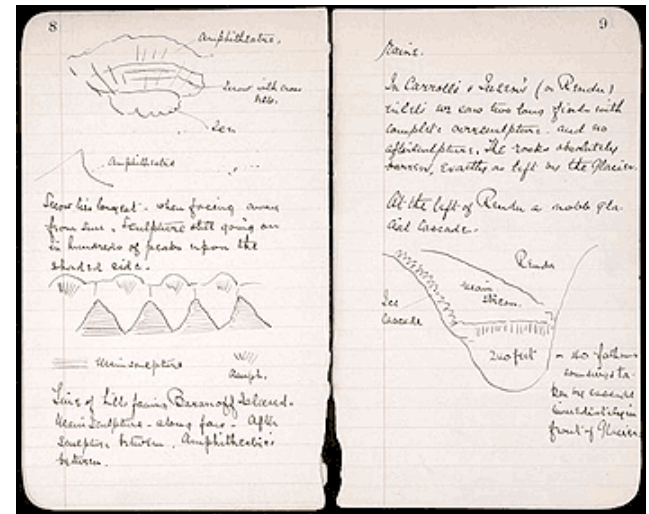 8
Amphitheatre.
Snow with cross
Amphitheatre
Snow lies longest - when facing away
from sun. Sculpture still going on
in hundreds of peaks upon the
shaded side.
Main sculpture
Amph.
Line of hill facing Baranoff Island.
Main Sculpture - along face - After
Sculpture between. Amphitheatres
between.
9
In Carroll's & Queen's (or Rendu)
inlets we saw two long fiords with
complete oversculpture and no
aftersculpture. The rocks absolutely
barren, exactly as left by the Glacier.
At the left of Rendu a noble gla-
cial Cascade.
Rendu
main
stream
Ice
Cascade
200 feet
or 40 fathoms
soundings ta-
ken by vessel
immediately in
front of Glacier.